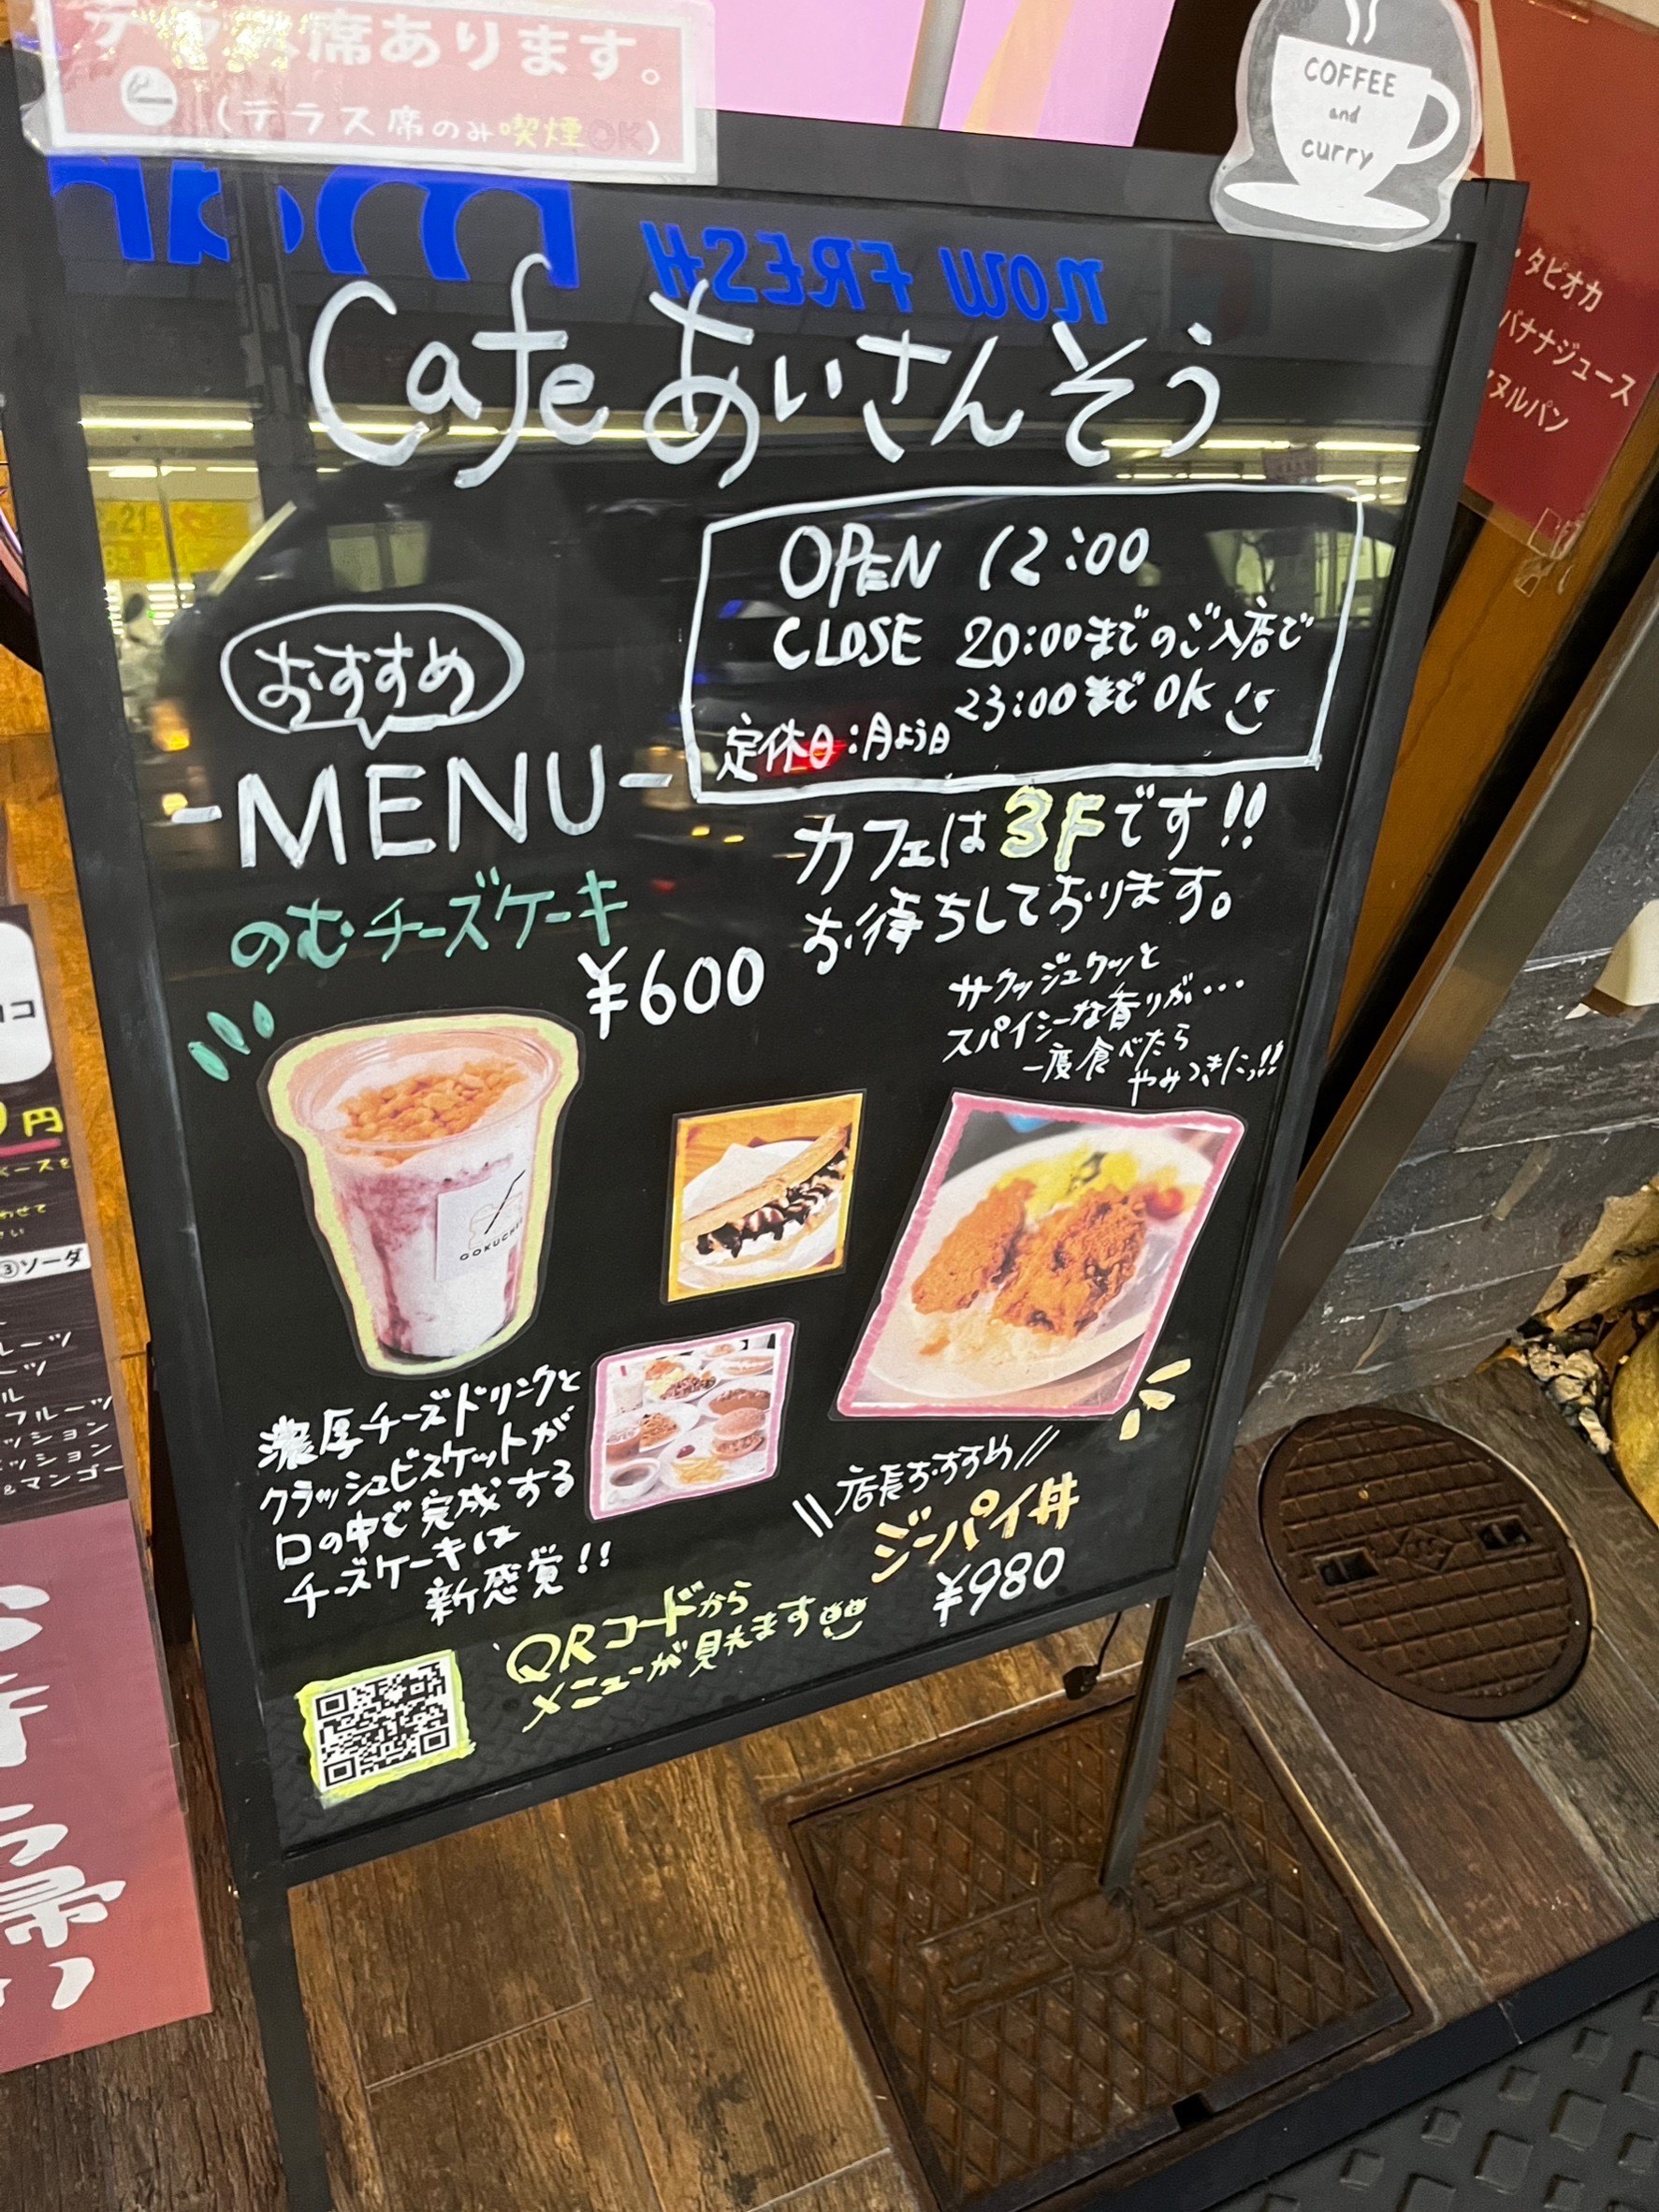 テラス席あります。
(テラス席のみ喫煙OK)
COFFEE
and
curry
NOW FRESH
Cafe あいさんそう
OPEN 12:00
CLOSE 20:00までのご入店で
23:00までOK
定休日:月よう日
おすすめ
-MENU-
カフェは3Fです!!
お待ちしております。
のむチーズケーキ
¥600
サクッジュワッと
スパイシーな香りが...
一度食べたら
やみつきにっ!!
GOKUCHEE
濃厚チーズドリンクと
クラッシュビスケットが
口の中で完成する
チーズケーキは
新感覚!!
店長おすすめ
ジーパイ丼
¥980
QRコードから
メニューが見れます
・タピオカ
バナナジュース
ヌルパン
円
③ソーダ
フルーツ
&マンゴー